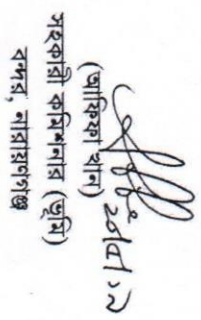 (আফিফা খান)
সহকারী কমিশনার (ভূমি)
বন্দর, নারায়ণগঞ্জ